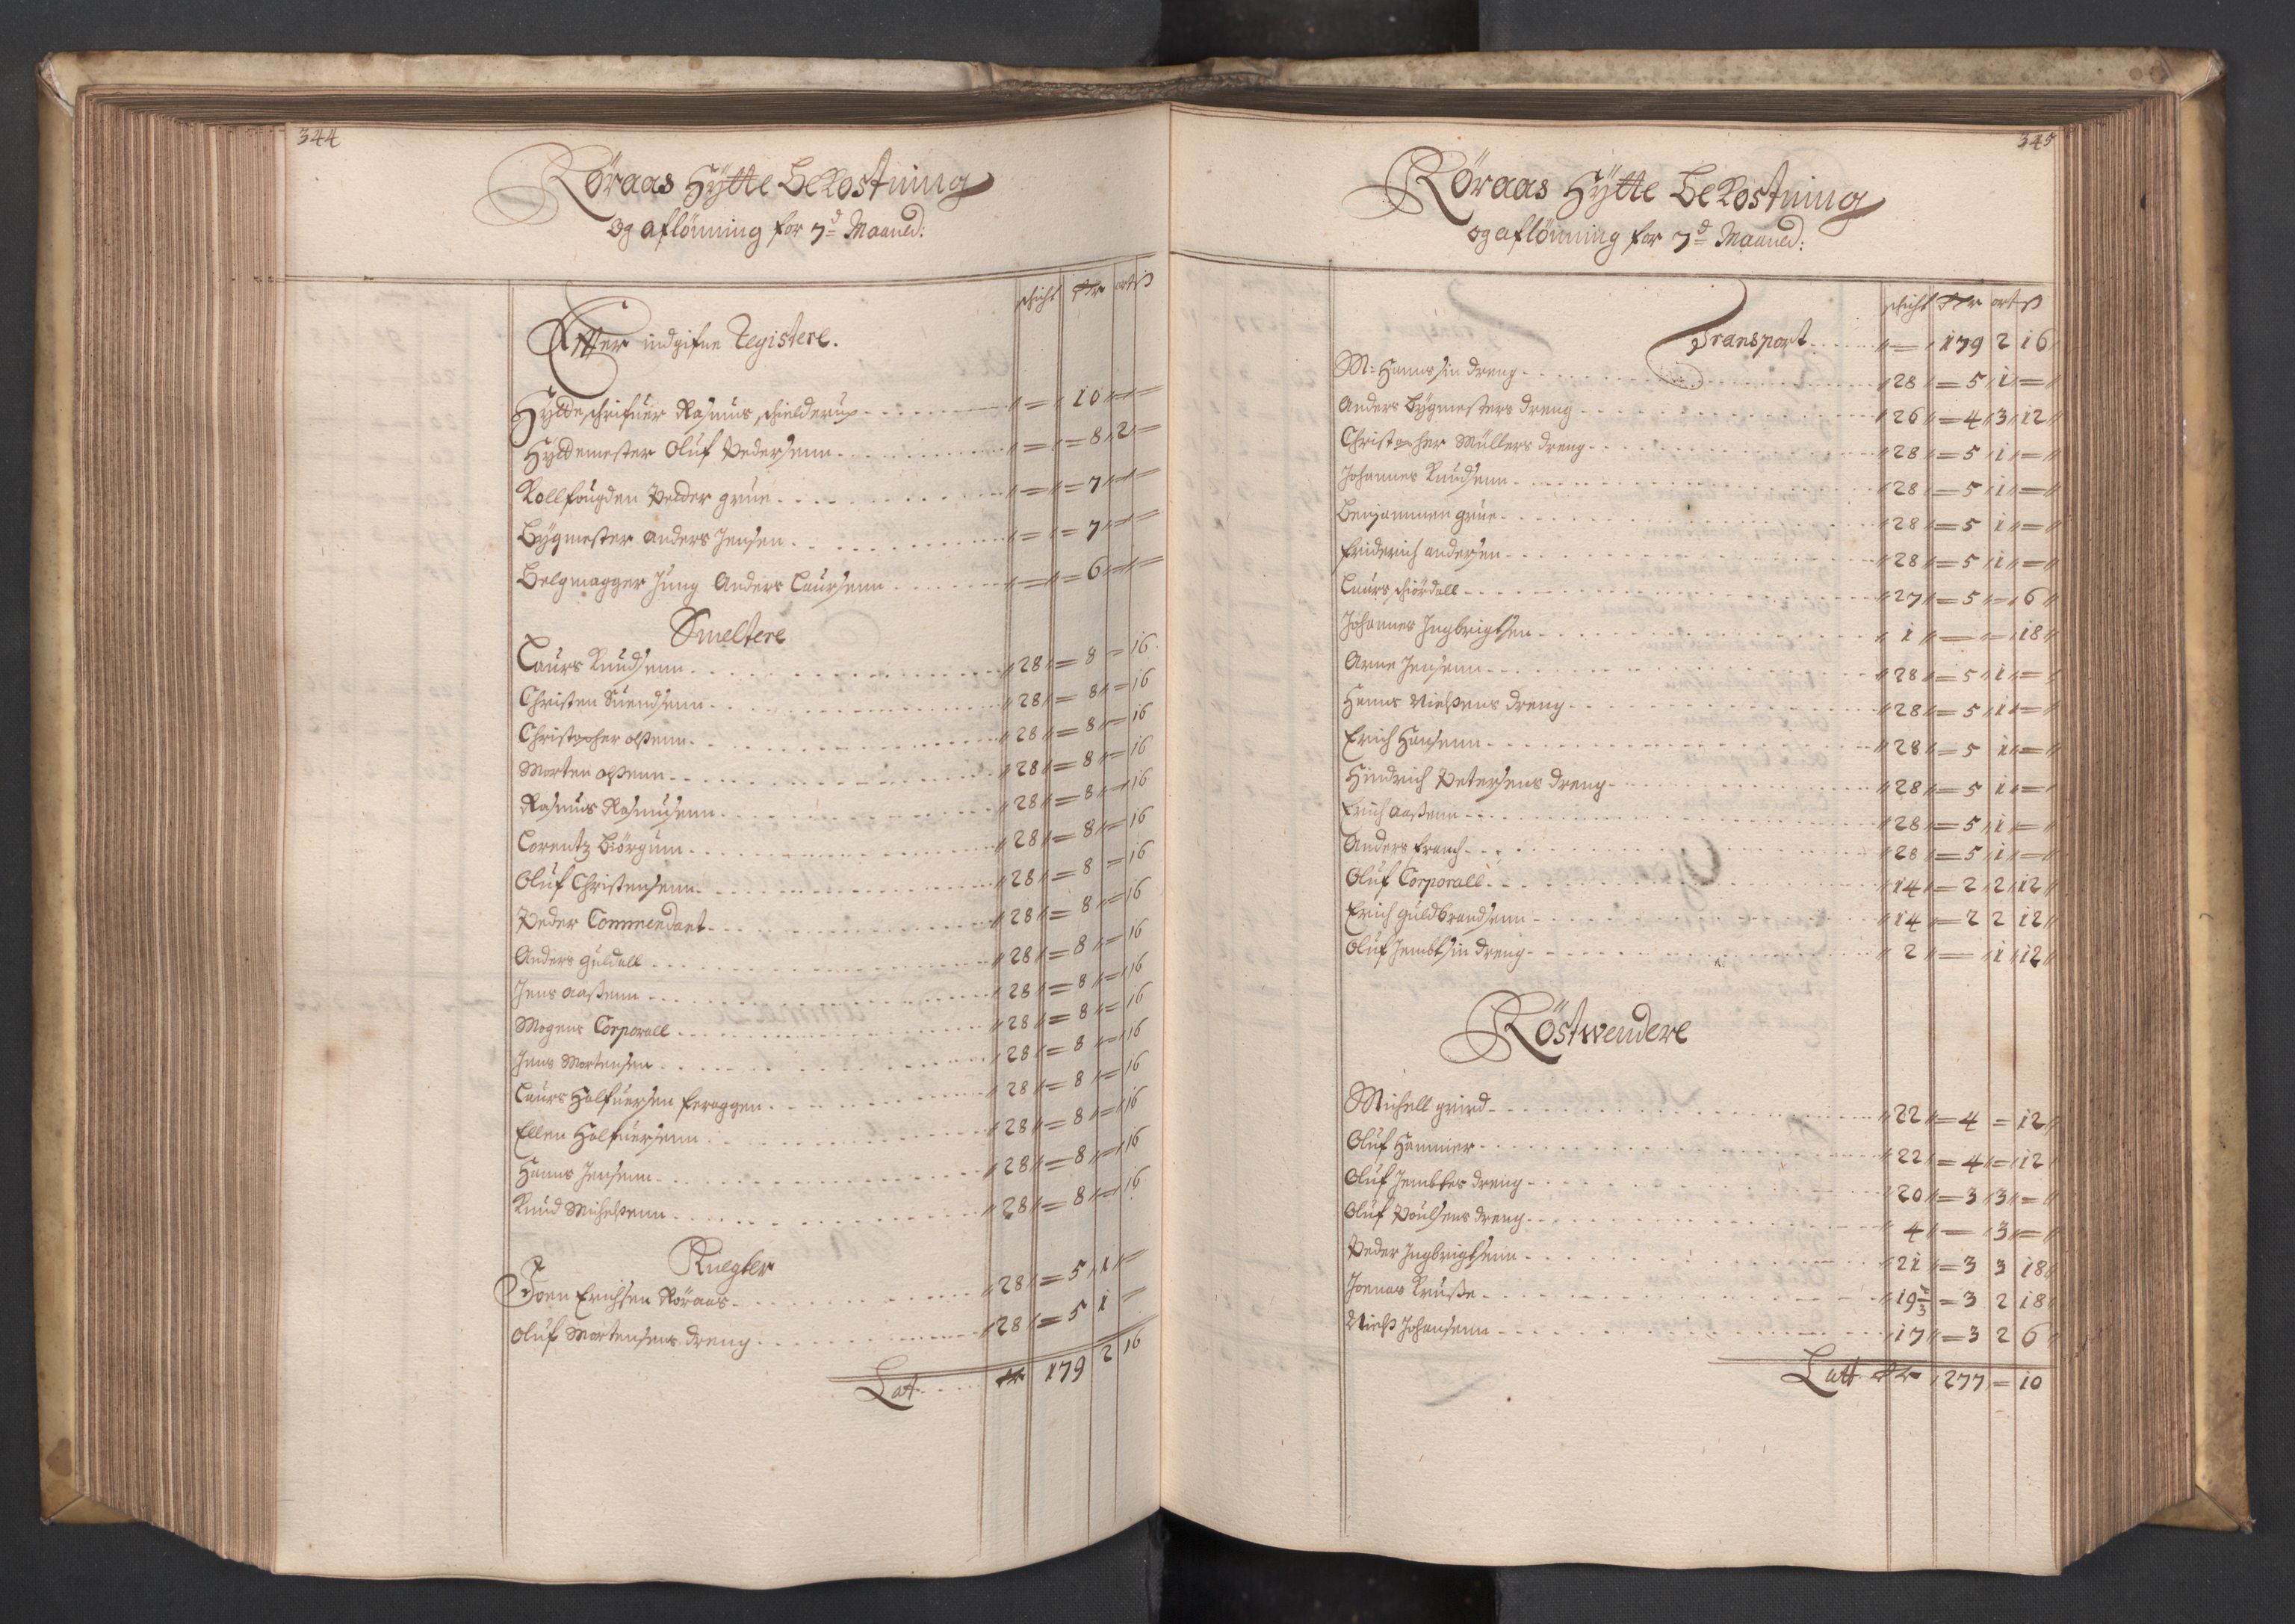 344
Røraas Hÿtte Bekostning
og aflönning for 7d Maaned:
schicht Rdr ort ß
Effter indgifne Registere.
Hÿtteschrifuer Rasmus schielderup " = " 10 " = " =
Hÿttemester Oluf Pedersenn " = " = 8 " 2 " =
Kollfougden Pedder grue " = " = 7 " = " =
Bÿgmester Anders Jensen " = " = 7 " = " =
Belgmagger Jung Anders Laursenn " = " = 6 " = " =
Smeltere
Laurs Knudsenn " 28 " = 8 = 16
Christen Suendsenn " 28 " = 8 " = 16
Christopher olßenn " 28 " = 8 " = 16
Morten olßenn " 28 " = 8 " = 16
Rasmus Rasmusenn " 28 " = 8 " = 16
Lorentz Biörgum " 28 " = 8 " = 16
Oluf Christensenn " 28 " = 8 = 16
Peder Commendant " 28 " = 8 " = 16
Anders guldall " 28 " = 8 " = 16
Jens aaßenn " 28 " = 8 " = 16
Mogens Corporall " 28 " = 8 " = 16
Jens Mortensen " 28 " = 8 " = 16
Laurs Halfuersen feraggen " 28 " = 8 " = 16
Ellen Halfuersenn " 28 " = 8 " = 16
Hanns Jensenn " 28 " = 8 " = 16
Knud Michelßenn " 28 " = 8 " = 16
Knegter
Joen Erichsen Röraas " 28 " = 5 " 1 " =
Oluf Mortensens dreng " 28 " = 5 1 =
Lat Rdr 179 2 16
345
Røraas Hÿtte Bekostning
og aflönning for 7d Maaned:
schicht Rdr ort ß
Transport " = " 179 2 16
Mr: Hanns sin dreng " 28 " = 5 " 1 " = "
Anders Bÿgmesters dreng " 26 " = 4 " 3 " 12 "
Christopher Müllers dreng " 28 " = 5 " 1 " = "
Johannes Knudsenn " 28 " = 5 " 1 " = "
Benjammen grue " 28 " = 5 1 " = "
friderich andersen " 28 " = 5 " 1 " = "
Laurs schiördall " 27 " = 5 " = " 6 "
Johannes Ingbrigtsen " 1 " = " = " 18 "
Arne Jensenn " 28 " = 5 " 1 " = "
Hanns Nielßens dreng " 28 " = 5 " 1 " = "
Erich Hansenn " 28 " = 5 1 " = "
Hindrich Petersens dreng " 28 " = 5 1 " = "
Erich aaßenn " 28 " = 5 " 1 " = "
Anders franch " 28 " = 5 " 1 " = "
Oluf Corporall " 14 " = 2 " 2 " 12 "
Erich guldbrandsenn " 14 " = 2 2 12 "
Oluf Jembt sin dreng " 2 " = " 1 " 12 "
Röstwendere
Michell grird " 22 " = 4 = 12 "
Oluf Hammer " 22 " = 4 " = " 12 "
Oluf Jembtes dreng " 20 " = 3 " 3 " = "
Oluf Poulsens dreng " 4 " = " 3 " = "
Peder Ingbrigtsenn " 21 " = 3 3 18 "
Joenas Kruße " 19 2/3 = 3 2 18 "
Nielß Johansenn " 17 " = 3 2 6 "
Latt Rdr " 277 = 10